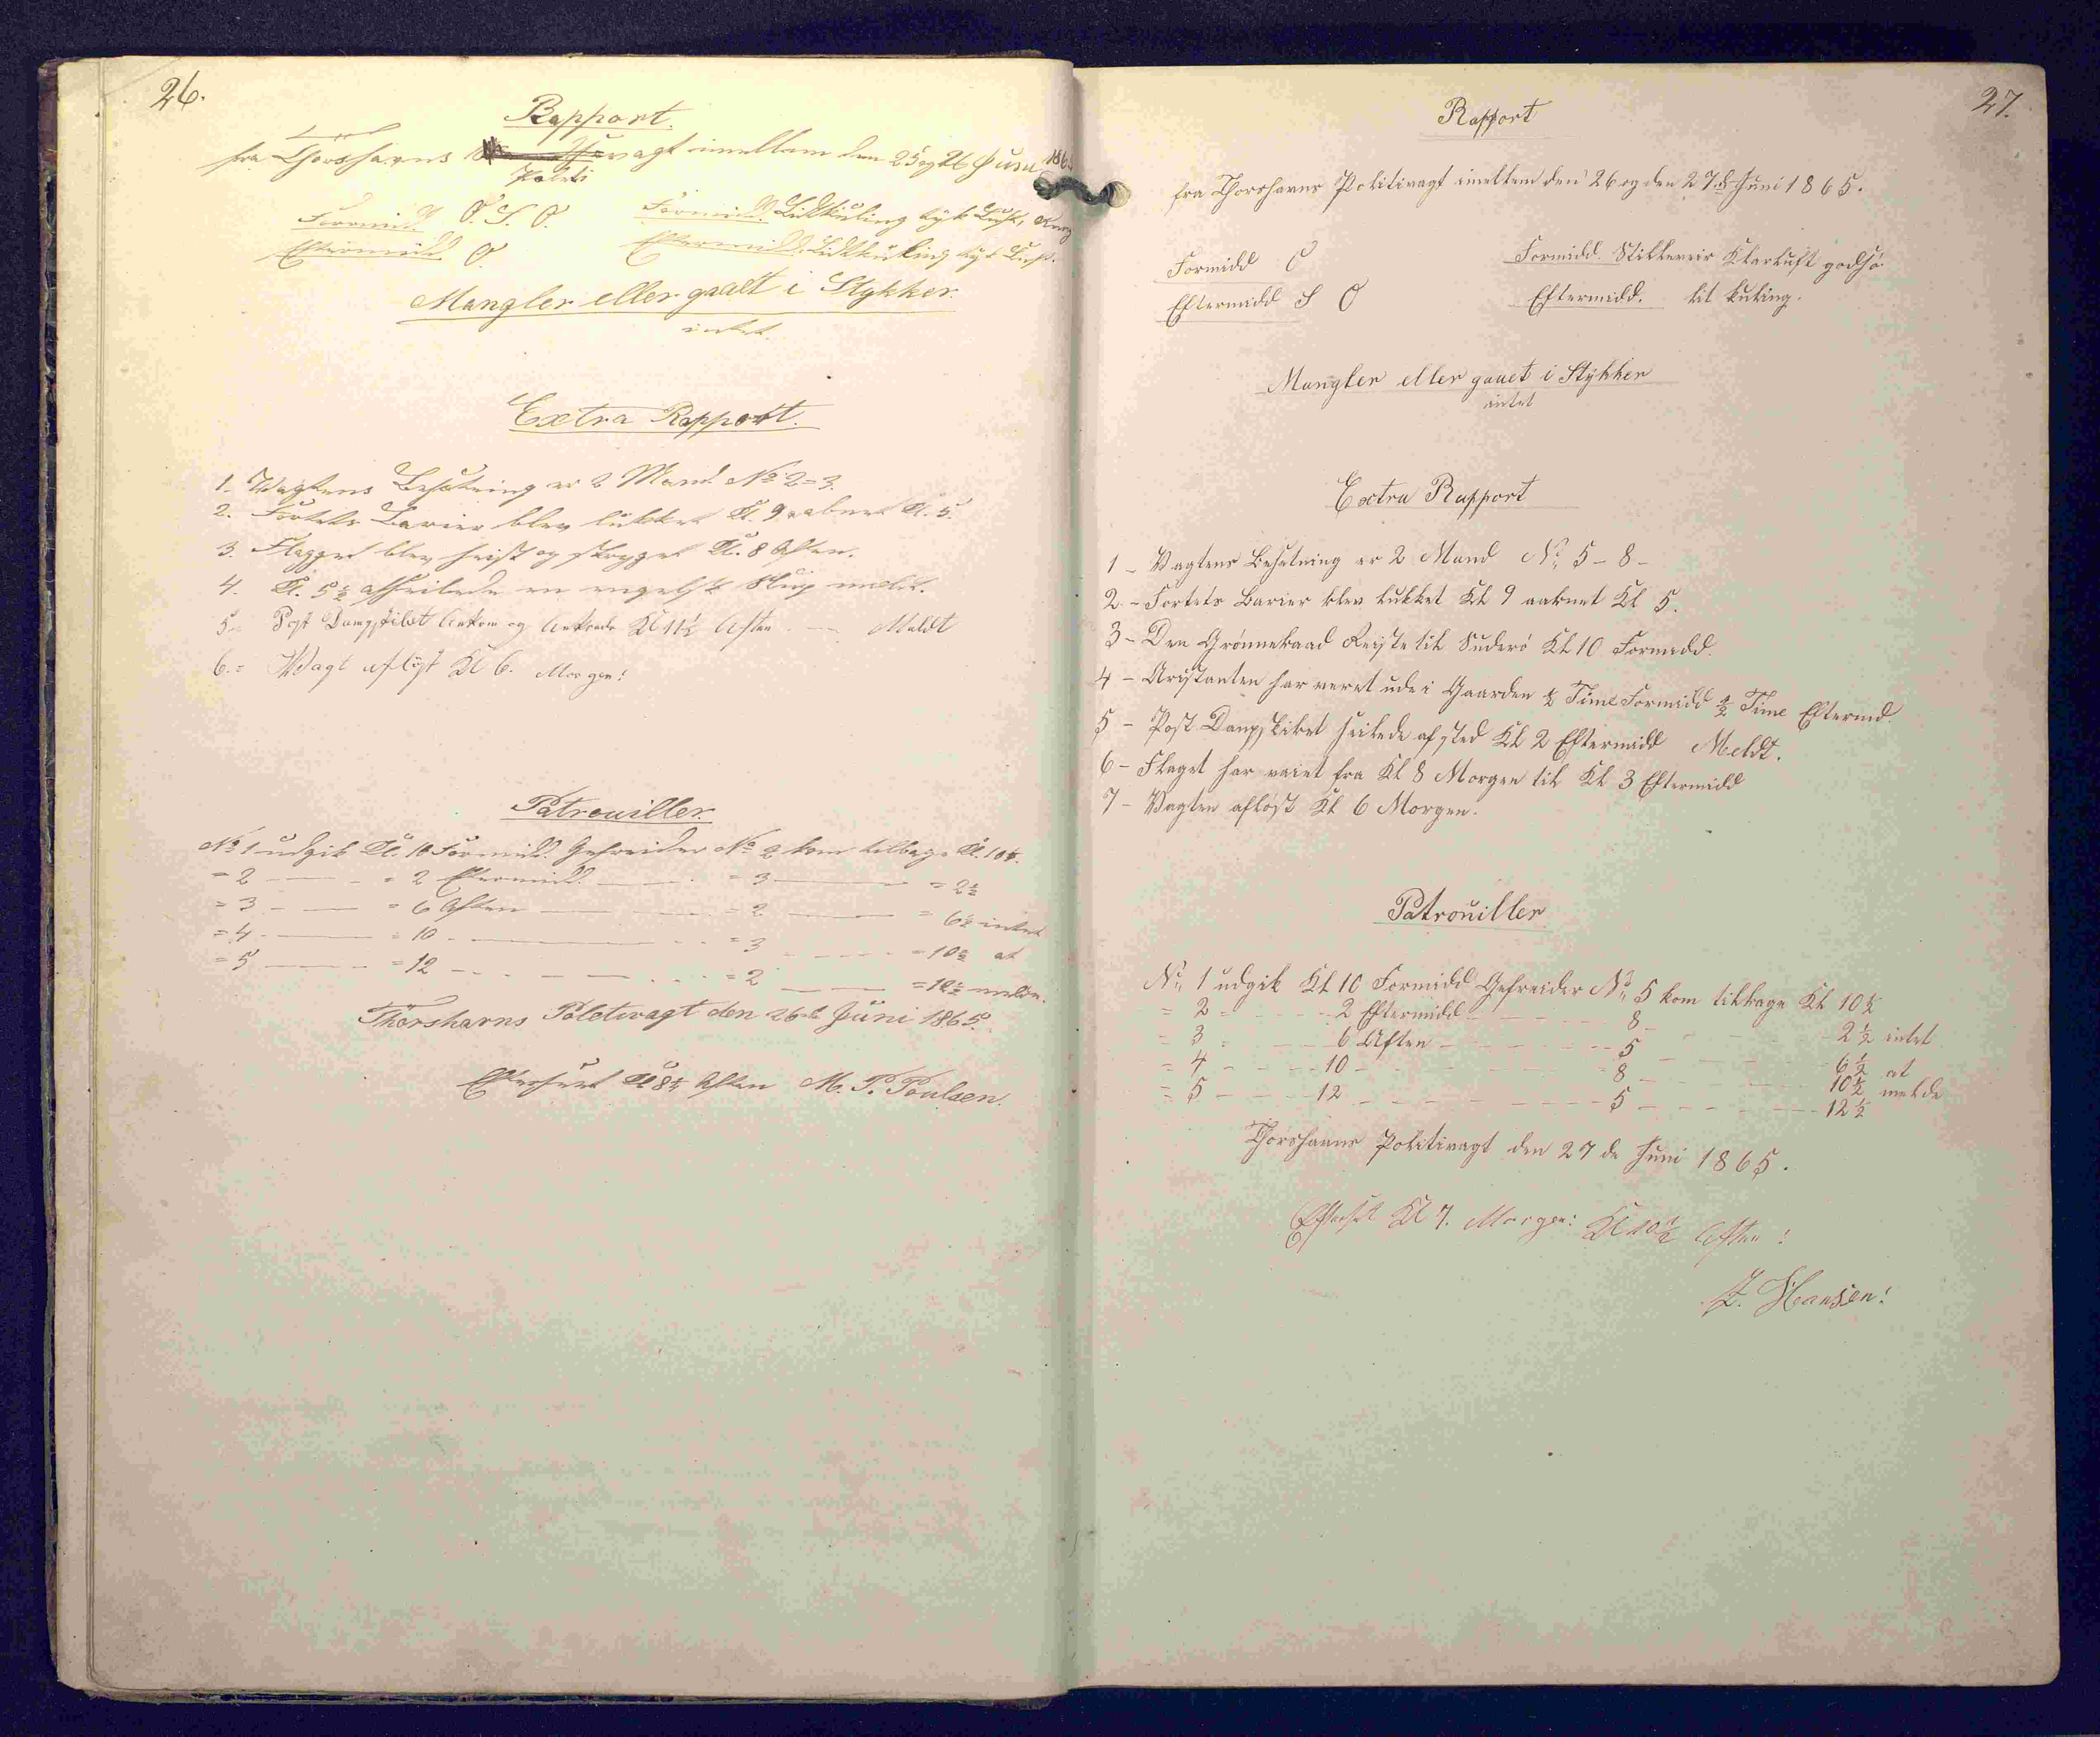 26.
Rapport.
fra Thorshavns vagt imellem den 25 og 26 Juni 186
Politi
Formid. O. S. O. Formid. Lidtkuling tyk Luft,
Eftermid. O. Eftermidd. Lidtkuling tyk Luft.
Mangler eller gaaet i Stykker.
intet.
Extra Rapport.
1. Wagtens Besætning er 2 Mand No 2=3.
2. Fortets Barier blev lukket Kl. 9 aabnet Kl. 5.
3. Flagget blev heist og strøget Kl. 8 Aften.
4. Kl. 5½ afseilede en engelsk Slup meldt.
5- Post Dampskibet Ankom og Ankrede Kl 11½ Aften — Meldt
6.= Wagt afløst Kl 6. Morgen!
Patrouiller.
No 1 udgik Kl. 10 Formidd. Gefreider No 2 kom tilbage Kl. 10½.
= 2 — = 2 Eftermidd. — = 3 — = 2½
= 3 — = 6 Aften — = 2 — = 6½ intet
= 4 — = 10 — = 3 — = 10½ at
= 5 — = 12 — = 2 — = 12½ melde.
Thorshavns Poletivagt den 26de Juni 1865.
Efterseet Kl 8½ Aften M. P. Poulsen.
27.
Rapport
fra Thorshavns Politivagt imellem den 26 og den 27d Juni 1865.
Formidd O Formidd. Stilleveir Klarluft godsø
Eftermidd S O Eftermidd. lit kuling.
Mangler eller gaaet i Stykker
intet
Extra Rapport
1 - Vagtens Besætning er 2 Mand No 5 - 8 -
2 - Fortets Barier blev lukket Kl 9 aabnet Kl 5.
3 - Den Grønnebaad Reiste til Suderø Kl 10 Formidd.
4 - Aristanten har veret ude i Gaarden ½ Time Formidd ½ Time Eftermd.
5 - Post Dampskibet seilede afsted Kl 2 Eftermidd Meldt.
6 - Flaget har vaiet fra Kl 8 Morgen til Kl 3 Eftermidd
7 - Vagten afløst Kl 6 Morgen.
Patrouiller
No 1 udgik Kl 10 Formidd Gefreider No 5 kom tilbage Kl 10½
= 2 - - - 2 Eftermidd - - - 8 - - - 2½ intet
= 3 - - - 6 Aften - - - 5 - - - 6½ at
= 4 - - - 10 - - - 8 - - - 10½ melde
= 5 - - - 12 - - - 5 - - - 12½
Thorshavns Politivagt den 27de Juni 1865.
Efterset Kl 7. Morgen: Kl 10½ Aften!
Z. Hansen!